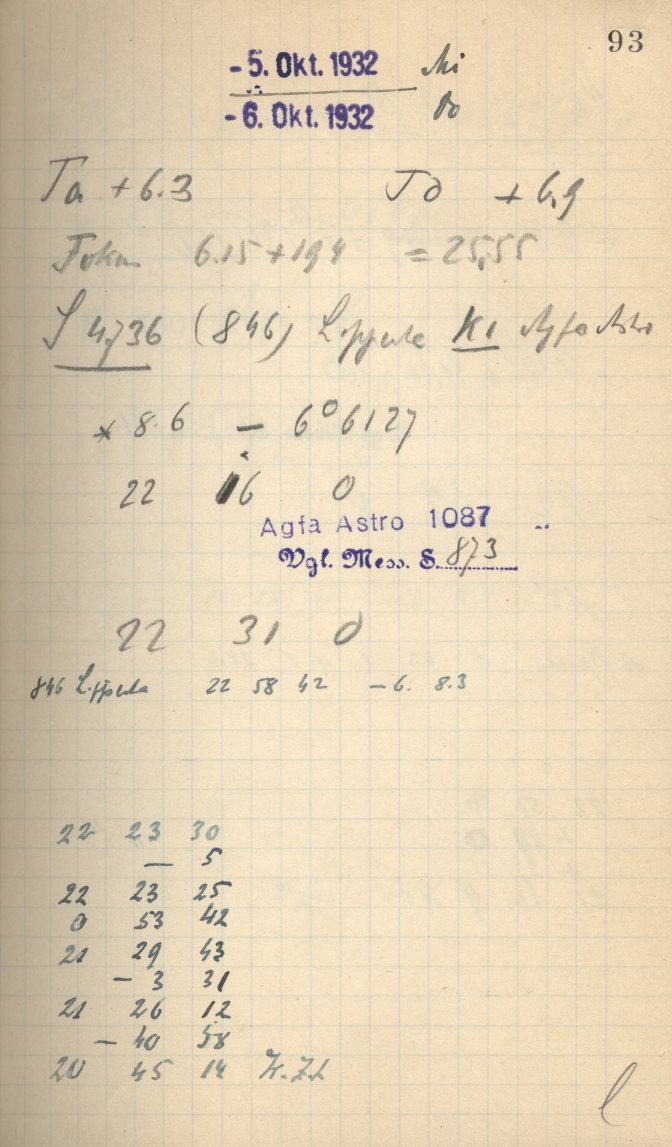 93
- 5. Okt. 1932 Mi
- 6. Okt. 1932 Do
Ta +6.3 Td +6,9
Fokus 6.15+194 = 25,55
S 4736 (846) Lipperta K1 Agfa Astro
* 8.6 — 6° 6127
22 16 0
Agfa Astro 1087
Vgl. Mess. S. 873
22 31 0
846 Lipperta 22 58 42 – 6. 8.3
22 23 30
— 5
22 23 25
0 53 42
21 29 43
– 3 31
21 26 12
– 40 58
20 45 14